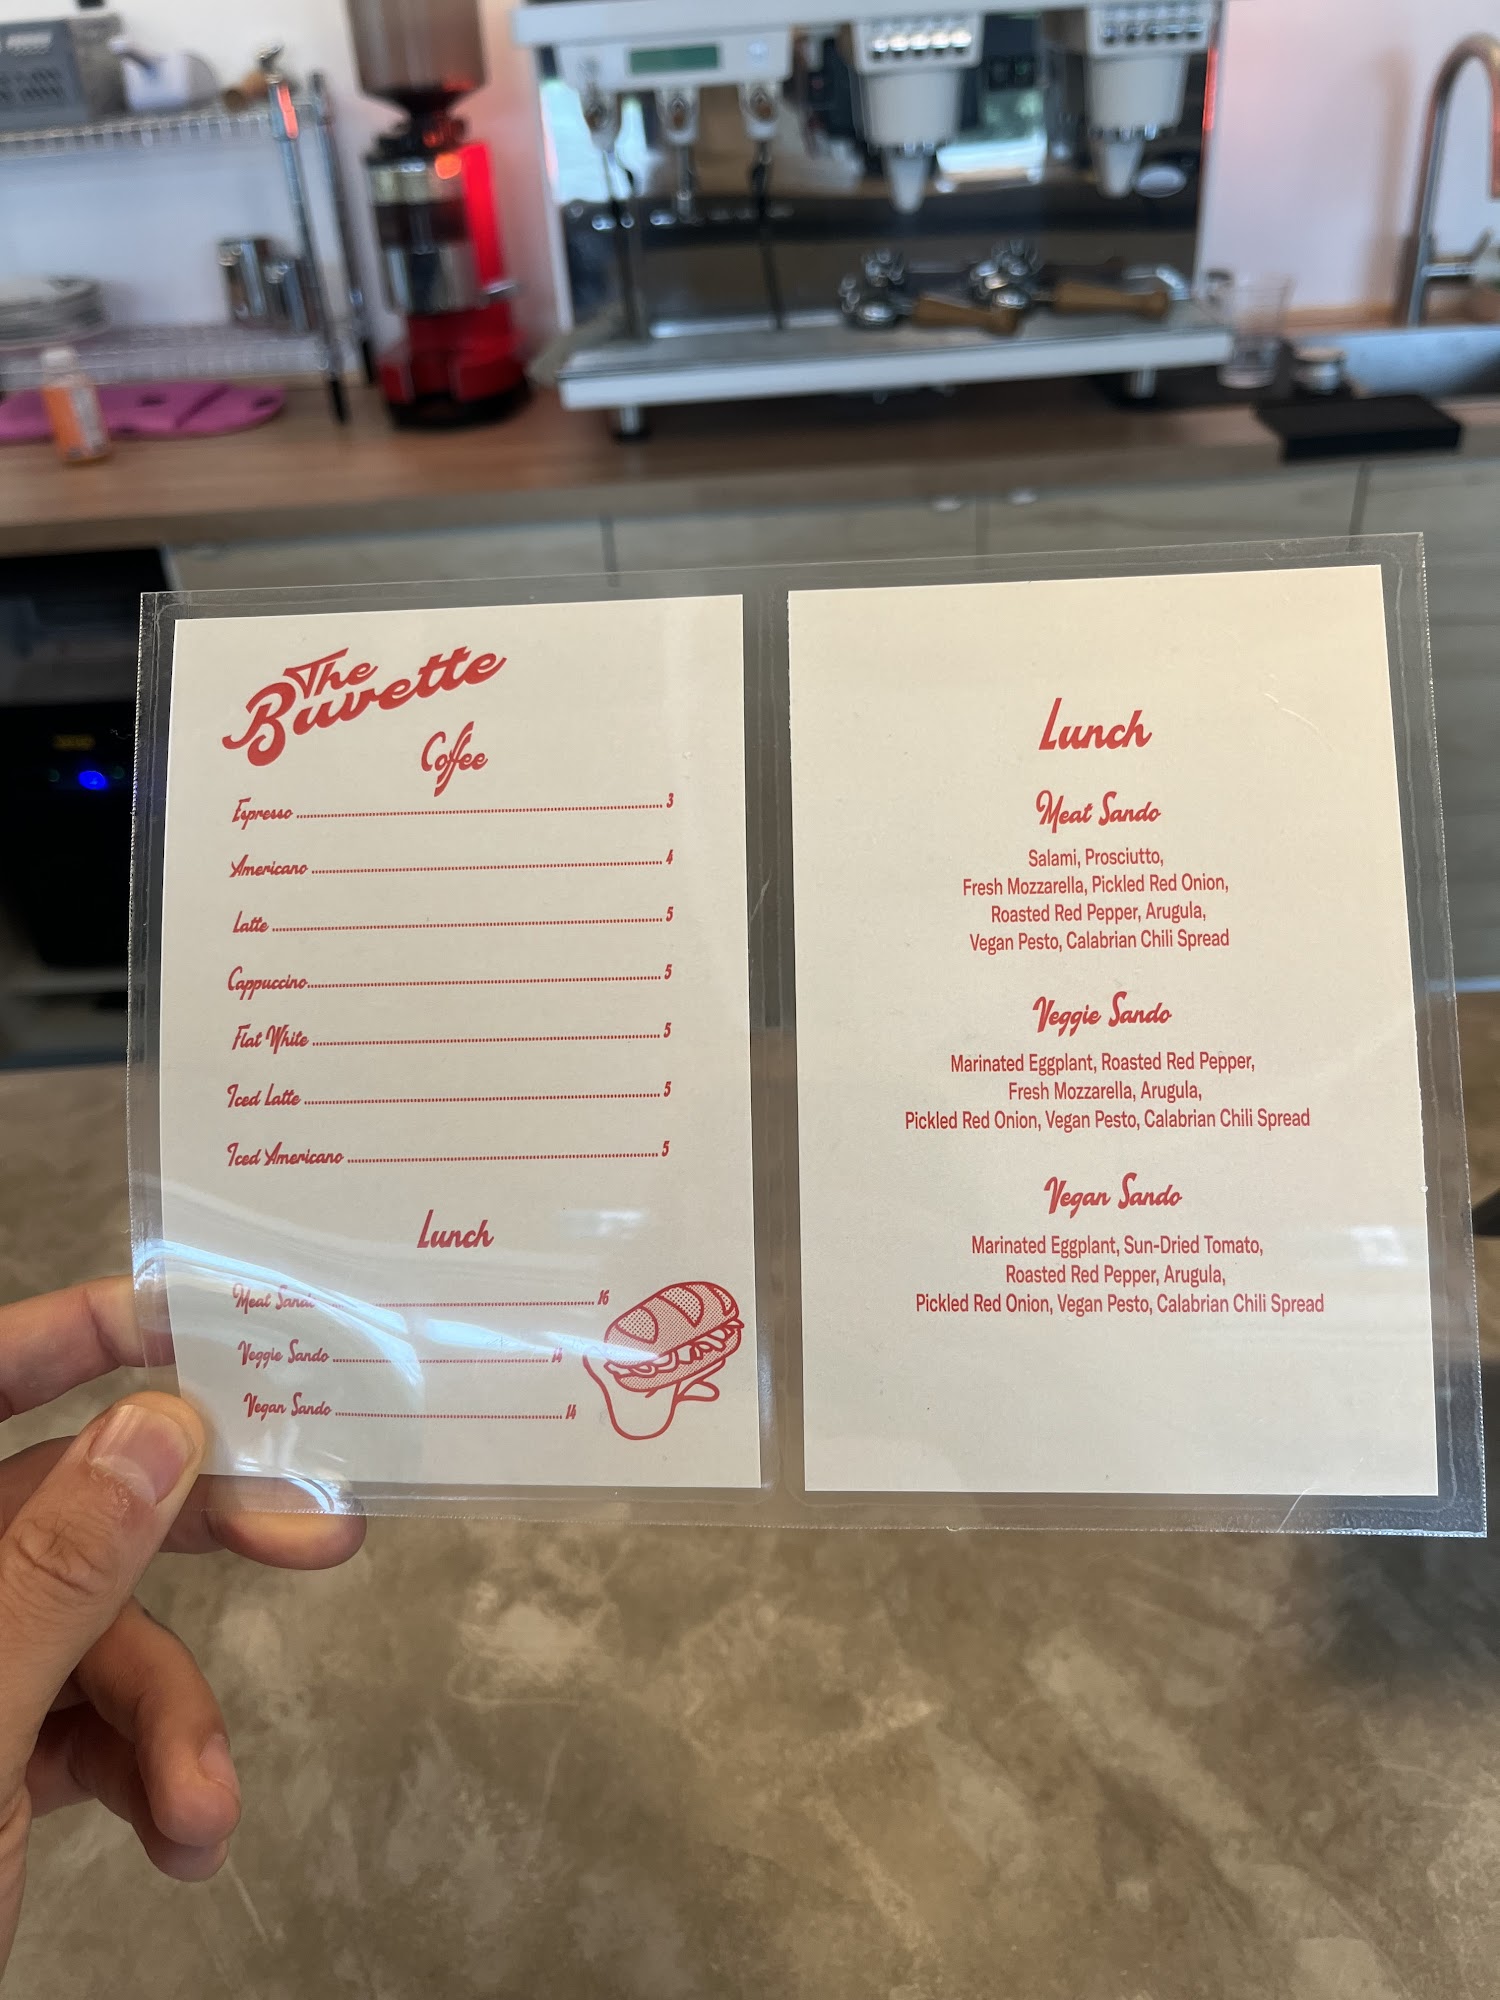 The
Buvette
Coffee
Espresso ........ 3
Americano ........ 4
Latte ........ 5
Cappuccino ........ 5
Flat White ........ 5
Iced Latte ........ 5
Iced Americano ........ 5
Lunch
Meat Sando ........ 16
Veggie Sando ........ 14
Vegan Sando ........ 14
Lunch
Meat Sando
Salami, Prosciutto,
Fresh Mozzarella, Pickled Red Onion,
Roasted Red Pepper, Arugula,
Vegan Pesto, Calabrian Chili Spread
Veggie Sando
Marinated Eggplant, Roasted Red Pepper,
Fresh Mozzarella, Arugula,
Pickled Red Onion, Vegan Pesto, Calabrian Chili Spread
Vegan Sando
Marinated Eggplant, Sun-Dried Tomato,
Roasted Red Pepper, Arugula,
Pickled Red Onion, Vegan Pesto, Calabrian Chili Spread